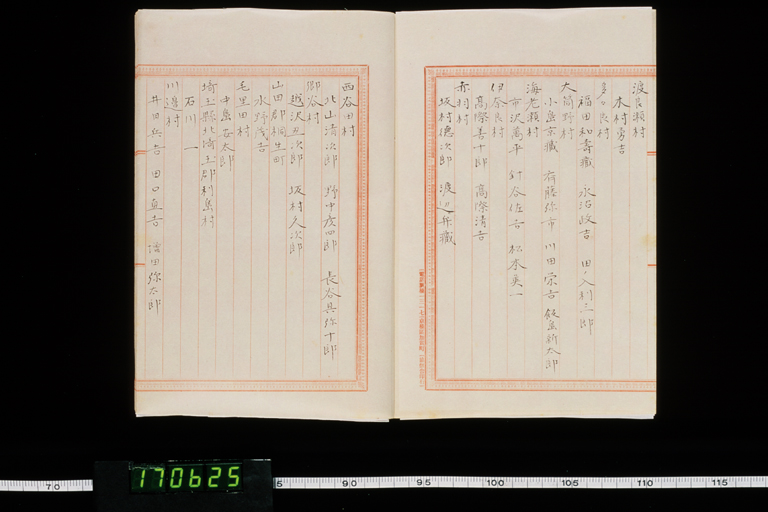 渡良瀬村
木村勇吉
多々良村
福田和壽藏 永沼政吉 田ノ入利三郎
大島野村
小島京藏 斉藤弥市 川田栄吉 飯島新太郎
海老瀬村
市沢萬平 針谷佐吉 松本英一
伊奈良村
高際善十郎 高際清吉
赤羽村
坂村徳次郎 渡辺兵藏
西谷田村
北山清次郎 野中彦四郎 長谷具弥十郎
郷谷村
越沢丑次郎 坂村久次郎
山田郡桐生町
水野茂吉
毛里田村
中島喜太郎
埼玉縣北埼玉郡利島村
石川一
川邊村
井田兵吉 田口直吉 増田弥太郎
170625
70 75 90 95 100 105 110 115